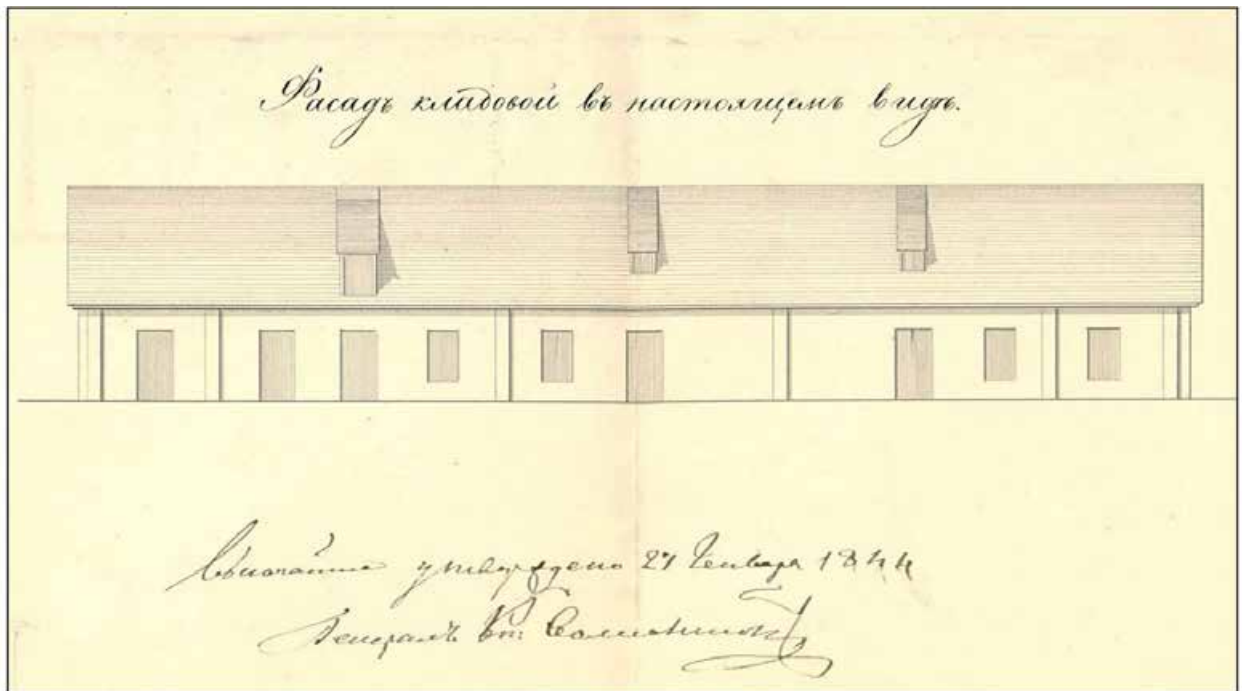 Фасадъ кладовой въ настоящемъ видѣ.
Высочайше утверждено 27 Генваря 1844
Генералъ Кн: Волконскій